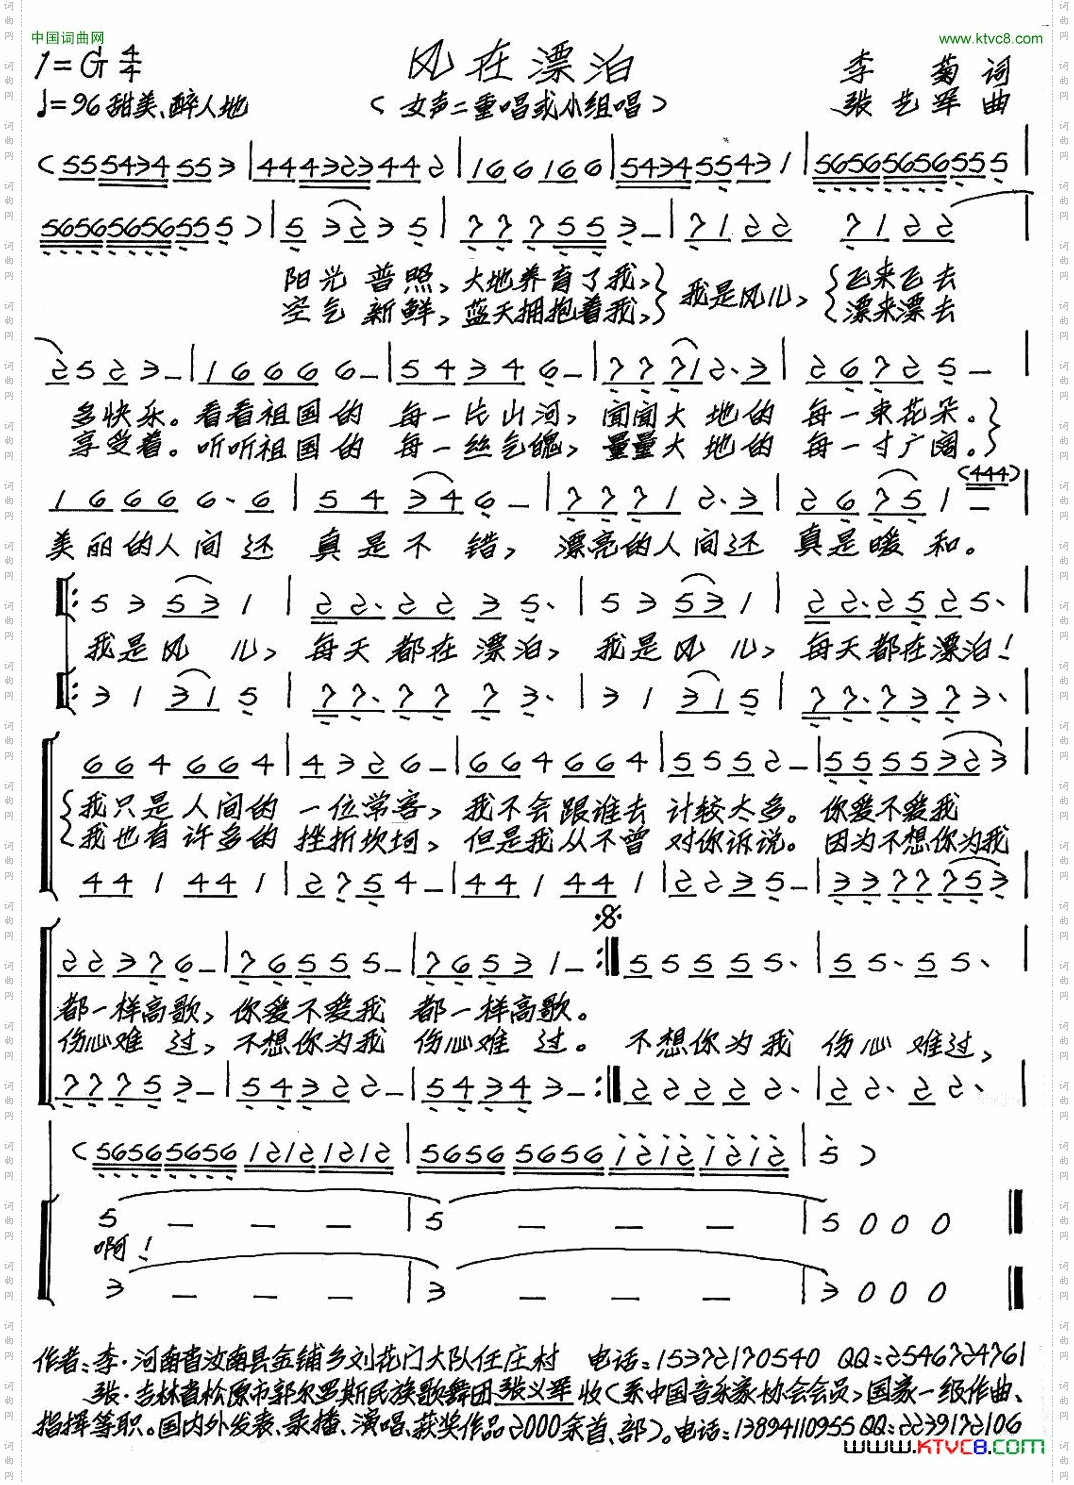 中国词曲网
www.ktvc8.com
1=G 4/4
风在漂泊
李 菊 词
♩=96 甜美、醉人地
(女声二重唱或小组唱)
张艺军 曲
(555434553|4443233442|166166|543455431|56565656555
56565656555)|53235|777553–|7122 7122
阳光 普照、大地养育了我,}我是风儿,{飞来飞去
空气 新鲜,蓝天拥抱着我,} {漂来漂去
2523–|16666–|54346–|77712·3|26725–
多快乐。看看祖国的 每一片山河,闻闻大地的 每一束花朵。}
享受着。听听祖国的 每一丝气魄,量量大地的 每一寸广阔。}
16666·6|54346–|77712·3|26751–(444)|
美丽的人间还 真是不 错,漂亮的人间还 真是暖 和。
53531|22·2235·|53531|22·2525·|
我是风 儿,每天都在漂泊,我是风 儿,每天都在漂泊!
31315|77·7773·|31315|77·7373·|
664664|4326–|664664|55522–|5555323|
{我只是人间的 一位常客,我不会跟谁去 计较太多。你爱不爱我
{我也有许多的 挫折坎坷,但是我从不曾 对你诉说。因为不想你为我
441441|2754–|441441|2235–|3377753|
22376–|76555–|76531–:‖555555·|55·555·|
都一样高歌,你爱不爱我 都一样高歌。
伤心难 过,不想你为我 伤心难 过。 不想你为我 伤心难过,
77753–|54322–|54343–:‖222222·|22·222·|
(5656565612121212|5656565612121212|5)
5 – – –|5 – – –|5000‖
啊!
3 – – –|3 – – –|3000‖
作者:李·河南省汝南县金铺乡刘花门大队任庄村 电话:15372170540 QQ:2546724761
张·吉林省松原市郭尔罗斯民族歌舞团张义军收(系中国音乐家协会会员)国家一级作曲、
指挥等职。国内外发表、录播、演唱、获奖作品2000余首、部)。电话:13894110955QQ:2239172106
www.KTVC8.com